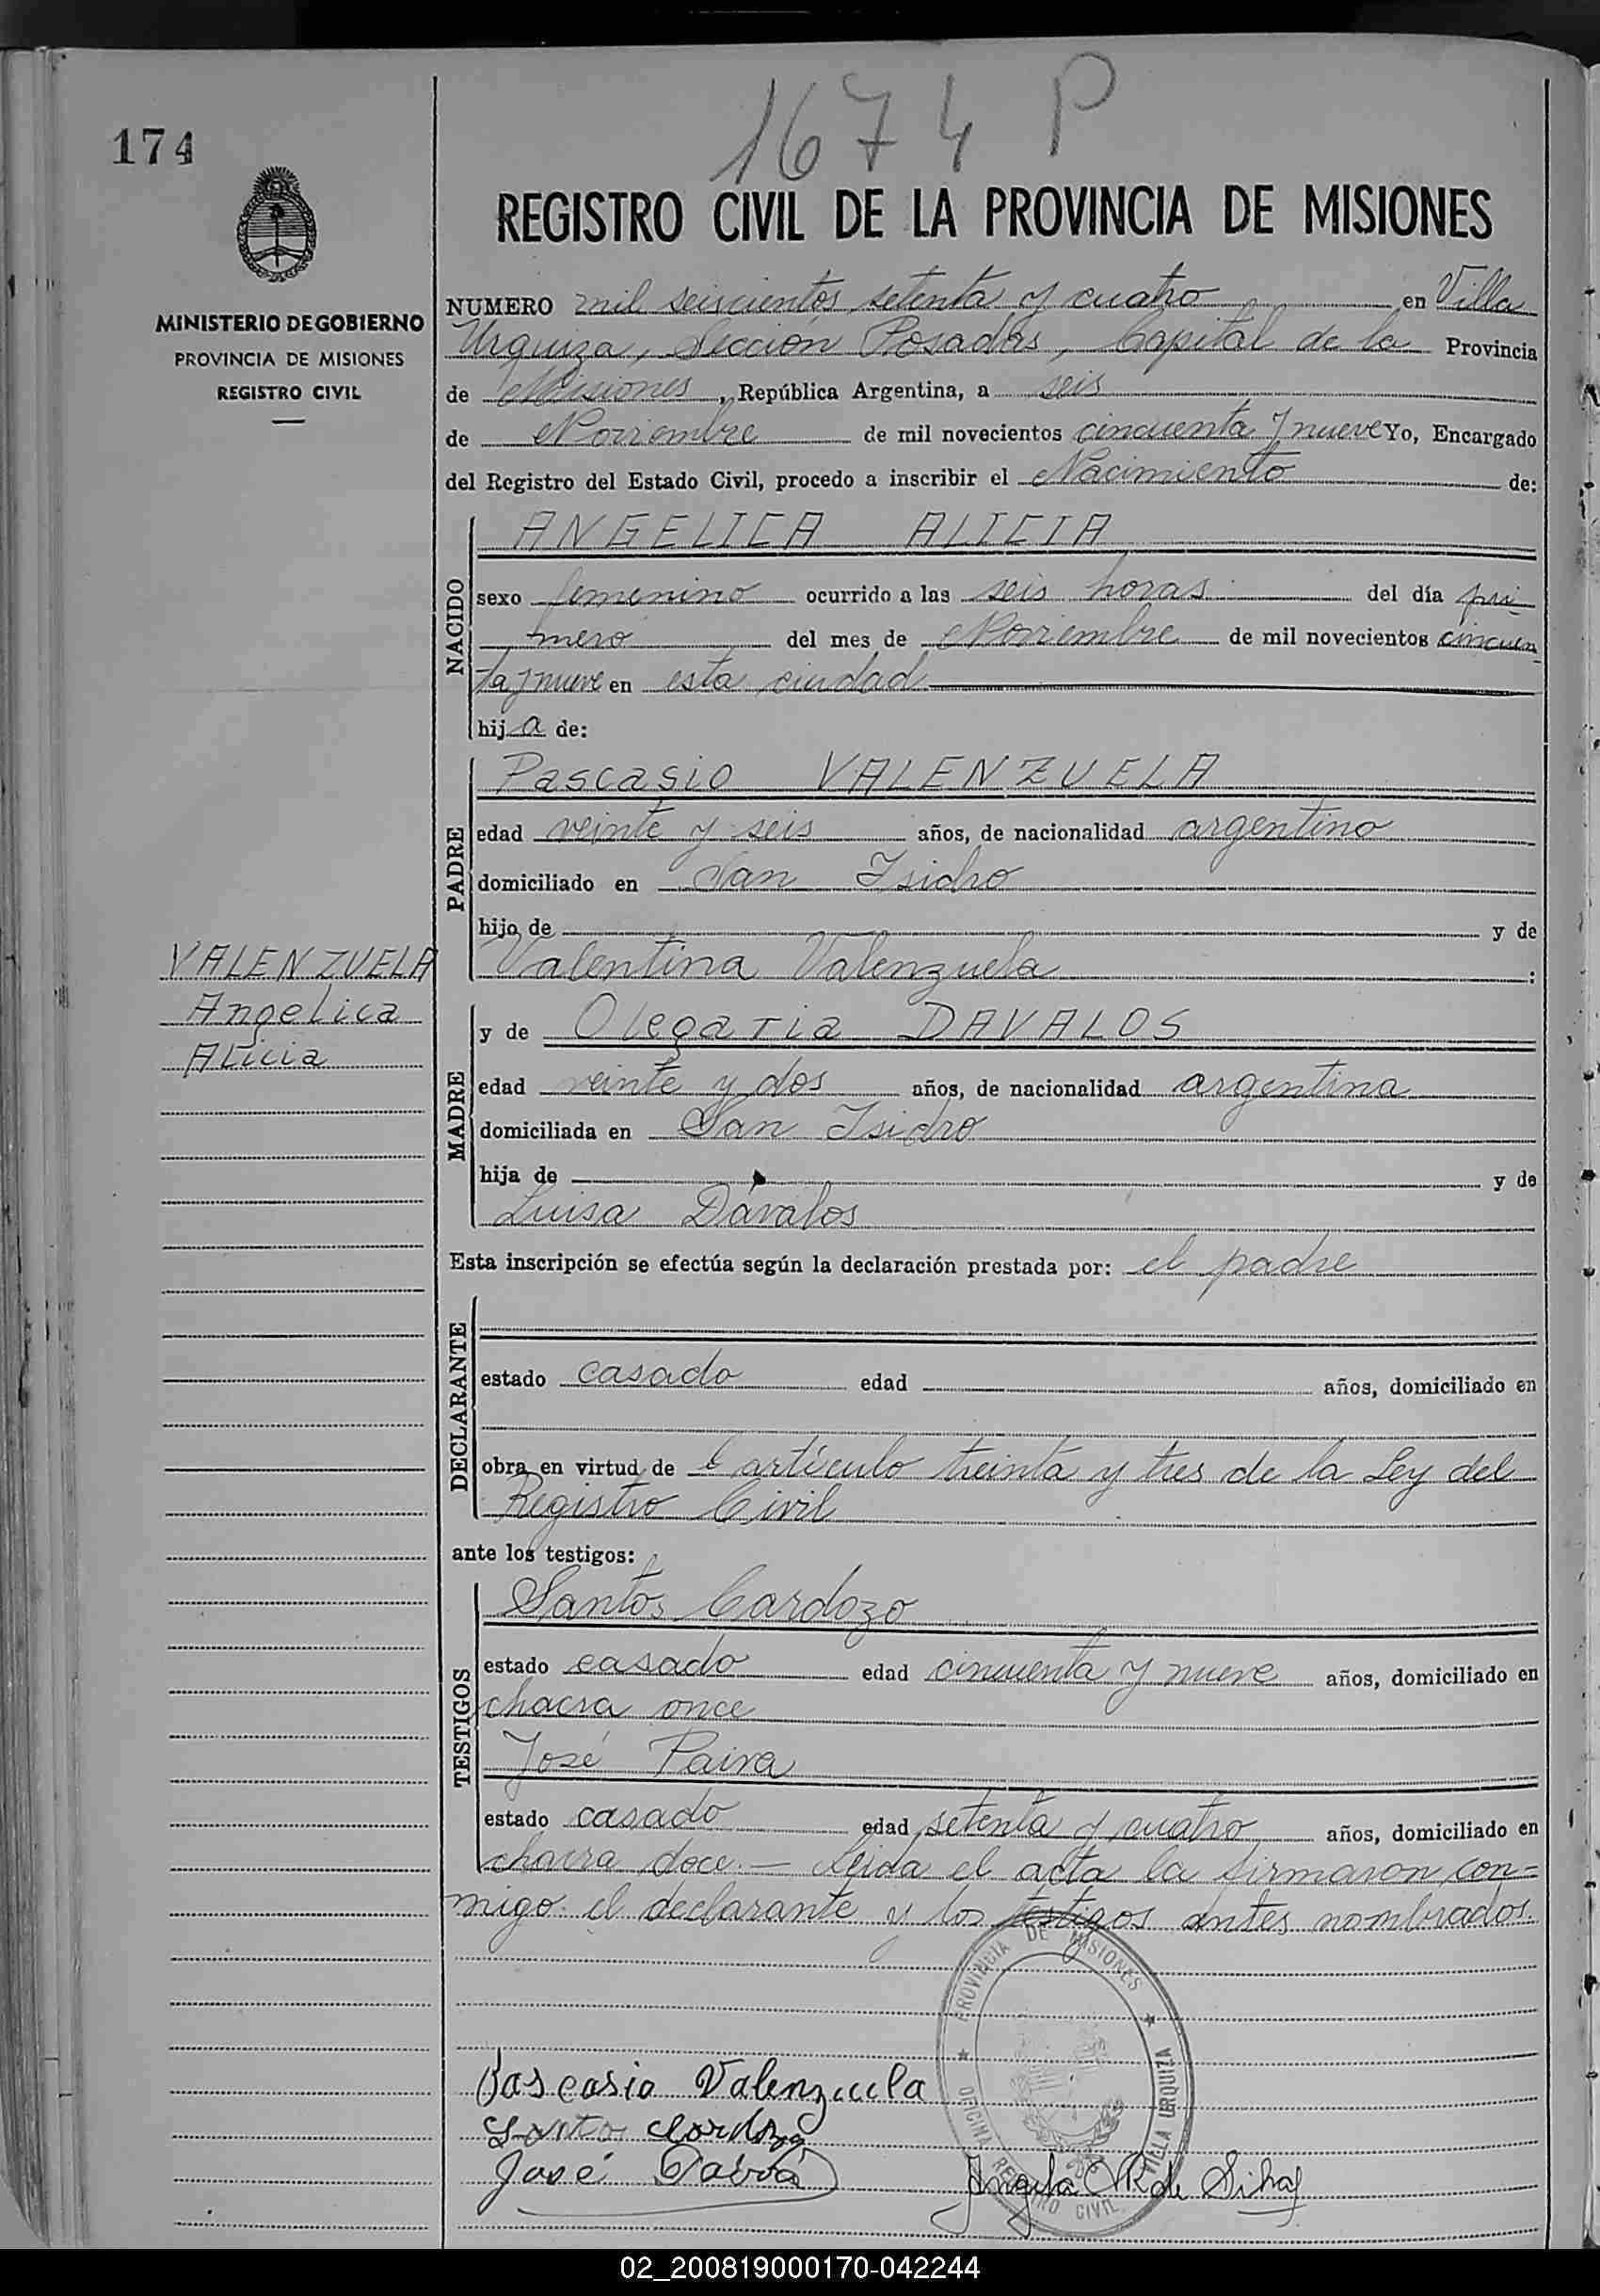 174
1674 P
MINISTERIO DE GOBIERNO
PROVINCIA DE MISIONES
REGISTRO CIVIL
VALENZUELA
Angelica
Alicia
REGISTRO CIVIL DE LA PROVINCIA DE MISIONES
NUMERO mil seiscientos setenta y cuatro en Villa
Urquiza, Sección Posadas, Capital de la Provincia
de Misiones, República Argentina, a seis
de Noviembre de mil novecientos cincuenta y nueve Yo, Encargado
del Registro del Estado Civil, procedo a inscribir el Nacimiento de:
NACIDO
ANGELICA ALICIA
sexo femenino ocurrido a las seis horas del día pri-
mero del mes de Noviembre de mil novecientos cincuen
ta y nueve en esta ciudad
hija de:
PADRE
Pascasio VALENZUELA
edad veinte y seis años, de nacionalidad argentino
domiciliado en San Isidro
hijo de y de
Valentina Valenzuela :
MADRE
y de Olegaria DAVALOS
edad veinte y dos años, de nacionalidad argentina
domiciliada en San Isidro
hija de y de
Luisa Dávalos
Esta inscripción se efectúa según la declaración prestada por: el padre
DECLARANTE
estado casado edad años, domiciliado en
obra en virtud de l artículo treinta y tres de la Ley del
Registro Civil
ante los testigos:
TESTIGOS
Santos Cardozo
estado casado edad cincuenta y nueve años, domiciliado en
chacra once
José Paiva
estado casado edad setenta y cuatro años, domiciliado en
chacra doce.— Leida el acta la firmaron con=
migo el declarante y los testigos antes nombrados.
PROVINCIA DE MISIONES
OFICINA REGISTRO CIVIL
VILLA URQUIZA
Pascasio Valenzuela
Santos Cardozo
José Paiva
Angela de
02_200819000170-042244